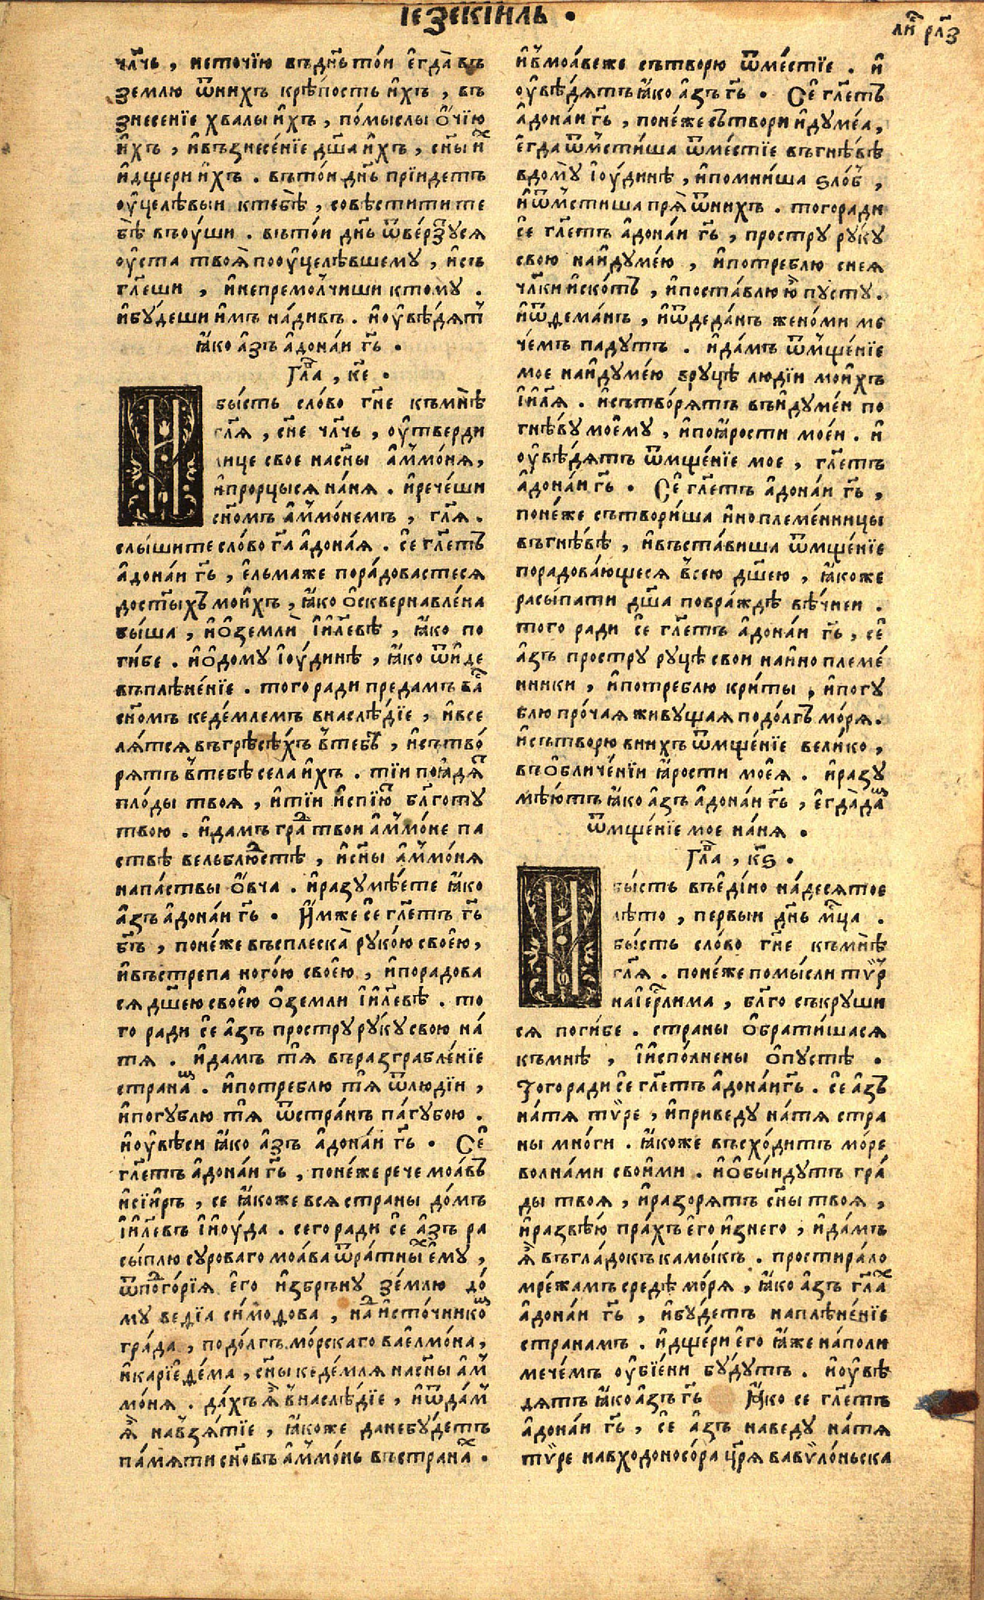 ІЕЗЕКІИЛЬ .
ли҃ рл҃з
чл҃чь , неточїю въдн҃ь то́й є҆гда̀ въ
землю ѿнихъ крѣпость и҆хъ , въ
знесенїе хвалы и҆хъ , по́мыслы ѻ҆чїю
и҆хъ , и҆възнесе́нїе дш҃а и҆хъ , сн҃ы и҆
и҆дщери и҆хъ . въто́й дн҃ь прїидетъ
оу҆целѣвыи ктебѣ̀ , совѣстити те
бѣ̀ въоуши . въто́й дн҃ь ѿве́рзꙋся
оу҆ста твоѧ̀ пооу҆целѣвшемꙋ , и҆съ
гл҃еши , и҆непремо́лчиши ктомꙋ̀ .
и҆бꙋ́деши и҆мъ на́дивъ . и҆оу҆вѣ́дят
ꙗ҆ко а҆зъ а҆дона́и гь҃ .
Гла҃ , к҃е .
бы́сть сло́во гн҃е къмнѣ̀
гл҃я , сн҃е чл҃чь , оу҆тверди
лице свое насн҃ы а҆ммо́ня ,
и҆прорцыся на́ня . и҆рече́ши
сн҃омъ а҆ммо́немъ , гл҃я .
слы́шите сло́во гд҃а а҆дона́я . се҆ гл҃етъ
а҆дона́и гь҃ , є҆льмаже пора́довастеся
ѡст҃ы́хъ мои́хъ , ꙗ҆ко ѻ҆скверна́влена
выша , и҆ѻ҆землѝ і҆и҃левѣ , ꙗ҆ко по
ги́бе . и҆ѻ҆домꙋ і҆оу́динѣ , ꙗ҆ко ѿи́де
въплѣне́нїе . того ради предамъ ва
сн҃омъ кеде́млемъ внаслѣ́дїе , и҆все
ля́тся въгрѣсѣ́хъ втебѣ̀ , и҆сътво́
рятъ втебѣ̀ села и҆хъ . тїи поꙗ҆дя́
пло́ды твоя , и҆тїи и҆спїю́ бл҃готꙋ
твою . и҆дамъ гра твои а҆ммо́не па
ствѣ̀ вельблю́стѣ , и҆сн҃ы а҆ммо́ня
напа́ствы ѻ҆́вча . и҆разꙋмѣ́ете ꙗ҆ко
а҆зъ а҆дона́и гь҃ . И҆мже се҆ гл҃етъ гь҃
бг҃ъ , поне́же въсплеска̀ рꙋко́ю свое́ю ,
и҆въстрепа ного́ю свое́ю , и҆порадова
ся дш҃ею свое́ю ѻ҆земли і҆и҃левѣ . то
го ради се҆ а҆зъ прострꙋ рꙋ́кꙋ свою на́
тя . и҆дамъ тя̀ въразграбле́нїе
страна . и҆потреблю тя̀ ѿлюдїи ,
и҆погꙋблю тя̀ ѿстра́нъ па́гꙋбою .
и҆оу҆вѣси ꙗ҆ко а҆зъ а҆дона́и гь҃ . Се҆
гл҃етъ а҆дона́и гь҃ , поне́же рече моа́въ
и҆сїи́ръ , се ꙗ҆коже вся страны до́мъ
і҆и҃левъ і҆и҆оу́да . сего ради се҆ а҆зъ ра
сы́плю сꙋроваго моа́ва ѿра́тны є҆мꙋ ,
ѿпого́рїя є҆го и҆збра́нꙋ зе́млю до́
мꙋ ведїа си́мѻдова , на и҆сто́чнико
гра́да , подо́лгъ мо́рскаго ваелмо́на ,
и҆карїеде́ма , сн҃ы кеде́мля насн҃ы а҆м
мо́ня . да́хъ ꙗ҆ внаслѣ́дїе , и҆ѿдам
ꙗ҆ навзя́тїе , ꙗ҆коже данебꙋ́детъ
па́мяти сн҃овъ а҆ммо́нь въстрана .
и҆вмоа́веже сътворю ѿме́стїе . и҆
оу҆вѣ́дятъ ꙗ҆ко а҆зъ гь҃ . Се҆ гл҃етъ
а҆дона́и гь҃ , поне́же сътвори и҆дꙋме́а ,
є҆гда ѿмсти́ша ѿме́стїе въгнѣ́вѣ
вдо́мꙋ і҆оу́динѣ , и҆помни́ша ѕло́б ,
и҆ѿмсти́ша пря ѿнихъ . того ради
се҆ гл҃етъ а҆дона́и гь҃ , прострꙋ рꙋ́кꙋ
свою наи҆дꙋме́ю , и҆потреблю снея
чл҃ки и҆ско́тъ , и҆поста́влю ю҆ пꙋ́стꙋ .
и҆ѿдема́нъ , и҆ѿдеда́нъ жено́ми ме
че́мъ падꙋтъ . и҆да́мъ ѿмще́нїе
мое наи҆дꙋме́ю врꙋцѣ̀ людїи мои́хъ
і҆и҃ля . и҆сътво́рятъ въи҆дꙋме́и по
гнѣ́вꙋ моемꙋ , и҆поꙗ҆рости мое́и . и҆
оу҆вѣ́дятъ ѿмще́нїе мое , гл҃етъ
а҆дона́и гь҃ . Се҆ гл҃етъ а҆дона́и гь҃ ,
поне́же сътвори́ша и҆ноплеме́нницы
въгнѣ́вѣ , и҆въста́виша ѿмще́нїе
порадова́ющеся все́ю дш҃ею , ꙗ҆коже
расы́пати дш҃а повра́ждѣ вѣ́чнеи .
того ради се҆ гл҃етъ а҆дона́и гь҃ , се҆
а҆зъ прострꙋ рꙋцѣ свои наи҆но племе́
нники , и҆потреблю кри́ты , и҆погꙋ
блю про́чая живꙋщая подо́лгъ мо́ря .
и҆сътворю внихъ ѿмще́нїе вели́ко ,
въѻ҆бличе́нїи ꙗ҆рости моея̀ . и҆разꙋ
мѣ́ютъ ꙗ҆ко а҆зъ а҆дона́и гь҃ , є҆гда̀ да
ѿмще́нїе мое на́ня .
Гла҃ , к҃ѕ .
бы́сть въеди́но на́десятое
лѣ́то , первыи дн҃ь мц҃а .
бы́сть сло́во гн҃е къмнѣ̀
гл҃я . поне́же помысли тѵ́р
наі҆ерл҃има , бл҃го съкрꙋши
ся поги́бе . страны ѻ҆брати́шася
къмнѣ̀ , і҆и҆спо́лнены ѻ҆пꙋстѣ .
Того ради се҆ гл҃етъ а҆дона́и гь҃ . се҆ а҆зъ
на́тя тѵ́ре , и҆приведꙋ на́тя стра
ны мно́ги . ꙗ҆коже въсхо́дитъ мо́ре
волна́ми свои́ми . и҆ѻ҆бы́идꙋтъ гра́
ды твоя , и҆разоря́тъ сн҃ы твоя ,
и҆развѣ́ю пра́хъ є҆го и҆знего , и҆да́мъ
ꙗ҆ въгла́докъ ка́мыкъ . простира́ло
мре́жамъ средѣ̀ мо́ря , ꙗ҆ко а҆зъ гл҃а
а҆дона́и гь҃ , и҆бꙋ́детъ наплѣне́нїе
странамъ . и҆дще́ри є҆го ꙗ҆же наполи
мече́мъ оу҆бїе́ни бꙋ́дꙋтъ . и҆оу҆вѣ́
дятъ ꙗ҆ко а҆зъ гь҃ Ꙗ҆ко се гл҃етъ
а҆дона́и гь҃ , се҆ а҆зъ наведꙋ на́тя
тѵ́ре навходоно́сора цр҃я вавѵло́ньска